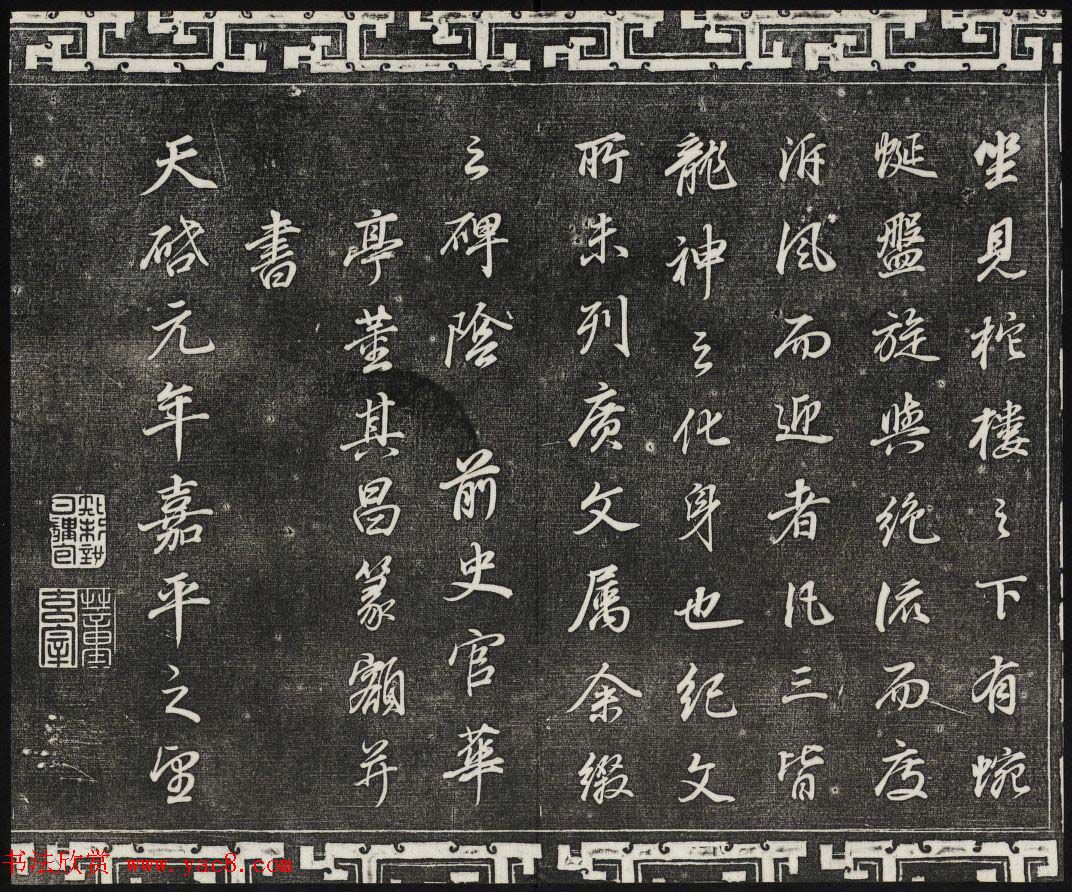 坐見柁樓之下有蜿
蜒盤旋與絶流而度
泝風而迎者凡三皆
龍神之化身也紀文
所未列廣文属余綴
之碑陰 前史官華
亭董其昌篆額并
書
天啓元年嘉平之望
知制誥日講官
书法欣赏 www.yac8.com